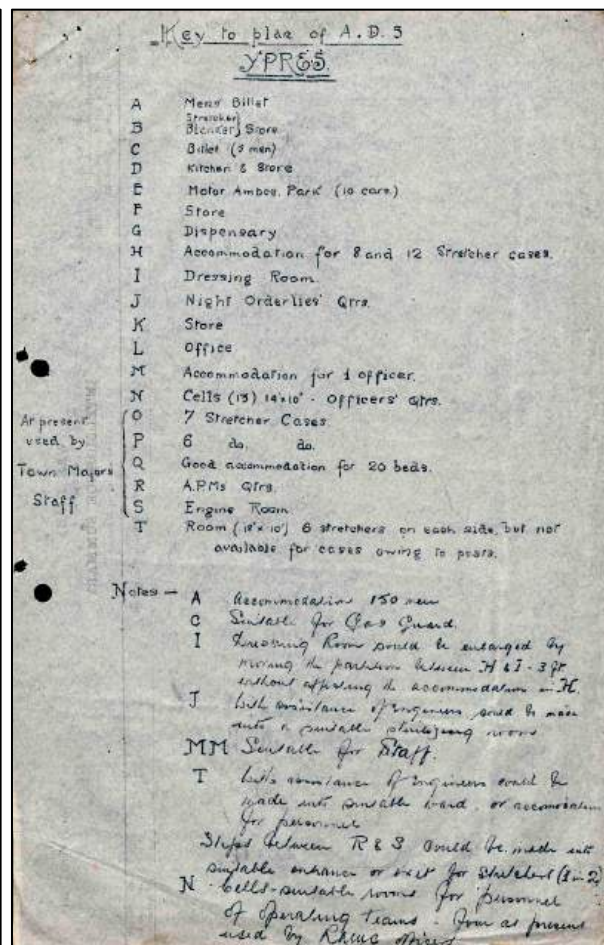 Key to plan of A.D.S
YPRES.
A Mens' Billet
B Stretcher Blanket } Store
C Billet (5 men)
D Kitchen & Store
E Motor Ambce. Park (10 cars)
F Store
G Dispensary
H Accommodation for 8 and 12 Stretcher cases.
I Dressing Room.
J Night Orderlies' Qtrs.
K Store
L Office
M Accommodation for 1 officer.
N Cells (13) 14'x10' - Officers' Qtrs.
O 7 Stretcher Cases.
P 6 do. do.
Q Good accommodation for 20 beds.
R A.P.Ms Qtrs.
S Engine Room.
At present
used by
Town Majors
Staff
T Room (18'x10') 6 stretchers on each side, but not
available for cases owing to posts.
Notes — A Accommodation 150 men
C Suitable for Gas Guard.
I Dressing Room could be enlarged by
moving the partition between H & I - 3 ft.
without affecting the accommodation in H.
J With assistance of Engineers could be made
into a suitable room
MM Suitable for Staff.
T With assistance of Engineers could be
made into suitable ward, or accomodation
for personnel
Steps between R & S could be made into
suitable entrance or exit for stretchers (1 in 2)
N Cells - suitable rooms for personnel
of operating teams - four at present
used by RAMC officers